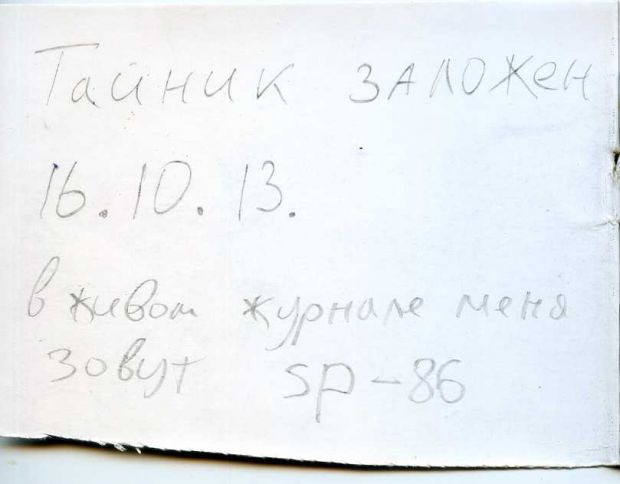 Тайник заложен
16.10.13.
в живом журнале меня
зовут sp-86